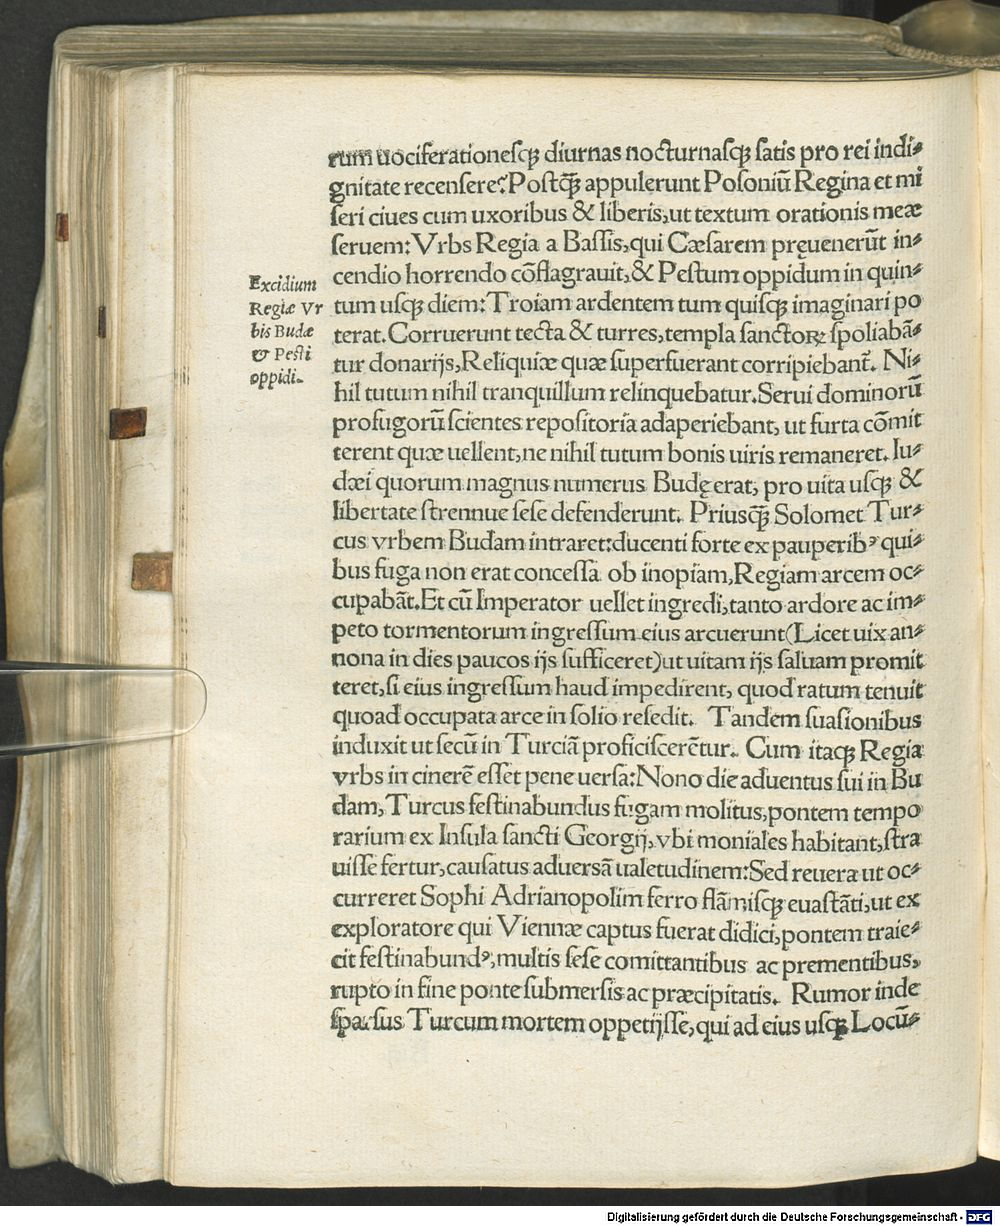 rum uociferationesq́ꝫ diurnas nocturnasq́ꝫ satis pro rei indi⸗
gnitate recensere? Postq̃ꝫ appulerunt Posoniũ Regina et mi
seri ciues cum uxoribus & liberis, ut textum orationis meæ
seruem: Vrbs Regia a Bassis, qui Cæsarem pręuenerũt in⸗
cendio horrendo cõflagrauit, & Pestum oppidum in quin⸗
tum usqꝫ diem: Troiam ardentem tum quisqꝫ imaginari po
terat. Corruerunt tecta & turres, templa sanctoꝝ spoliabã⸗
tur donarijs, Reliquiæ quæ superfuerant corripiebant̃. Ni⸗
hil tutum nihil tranquillum relinquebatur. Serui dominorũ
profugorũ scientes repositoria adaperiebant, ut furta cõmit
terent quæ uellent, ne nihil tutum bonis uiris remaneret. Iu⸗
dæi quorum magnus numerus Budę erat, pro uita usqꝫ &
libertate strennue sese defenderunt. Priusq̃ꝫ Solomet Tur⸗
cus vrbem Budam intraret: ducenti forte ex pauperibꝰ qui⸗
bus fuga non erat concessa ob inopiam, Regiam arcem oc⸗
cupabãt. Et cũ Imperator uellet ingredi, tanto ardore ac im⸗
peto tormentorum ingressum eius arcuerunt (Licet uix an⸗
nona in dies paucos ijs sufficeret) ut uitam ijs saluam promit
teret, si eius ingressum haud impedirent, quod ratum tenuit
quoad occupata arce in solio resedit. Tandem suasionibus
induxit ut secũ in Turciã proficiscerẽtur. Cum itaqꝫ Regia
vrbs in cinerẽ esset pene uersa: Nono die aduentus sui in Bu
dam, Turcus festinabundus fugam molitus, pontem tempo
rarium ex Insula sancti Georgij, vbi moniales habitant, stra
uisse fertur, causatus aduersã ualetudinem: Sed reuera ut oc⸗
curreret Sophi Adrianopolim ferro flãmisqꝫ euastãti, ut ex
exploratore qui Viennæ captus fuerat didici, pontem traie⸗
cit festinabundꝰ, multis sese comittantibus ac prementibus,
rupto in fine ponte submersis ac præcipitatis. Rumor inde
sparsus Turcum mortem oppetijsse, qui ad eius usqꝫ Locũ⸗
Excidium
Regiæ Vr
bis Budæ
& Pesti
oppidi.
Digitalisierung gefördert durch die Deutsche Forschungsgemeinschaft - DFG